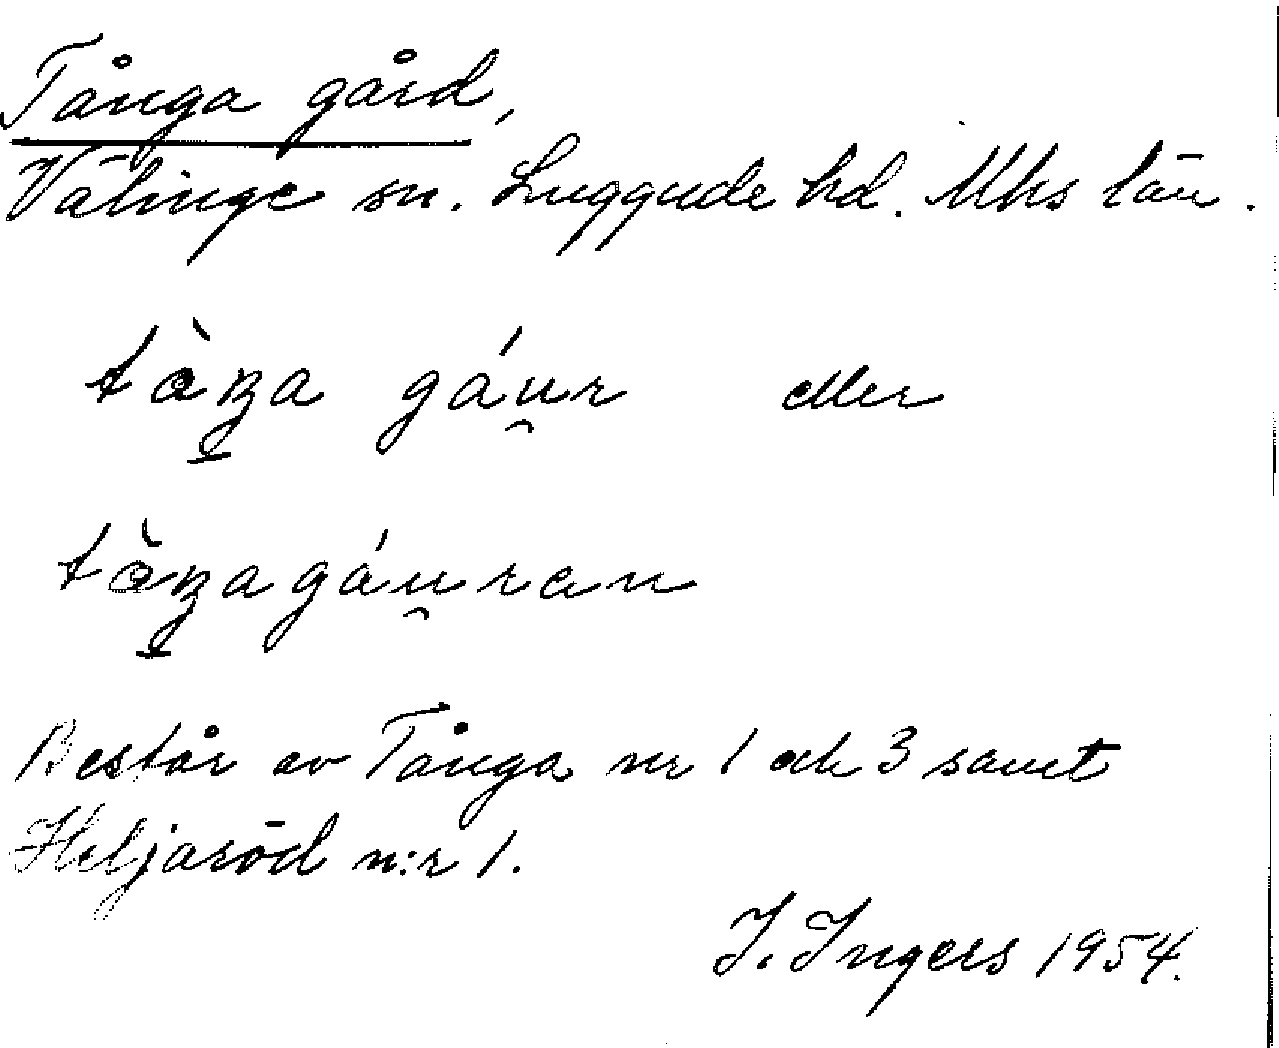 Tånga gård,
Välinge sn. Luggude hd. Mhs län.
tàŋa gáu̯r eller
tàŋagáu̯ran
Består av Tånga nr 1 och 3 samt
Heljaröd n:r 1.
I. Ingers 1954.